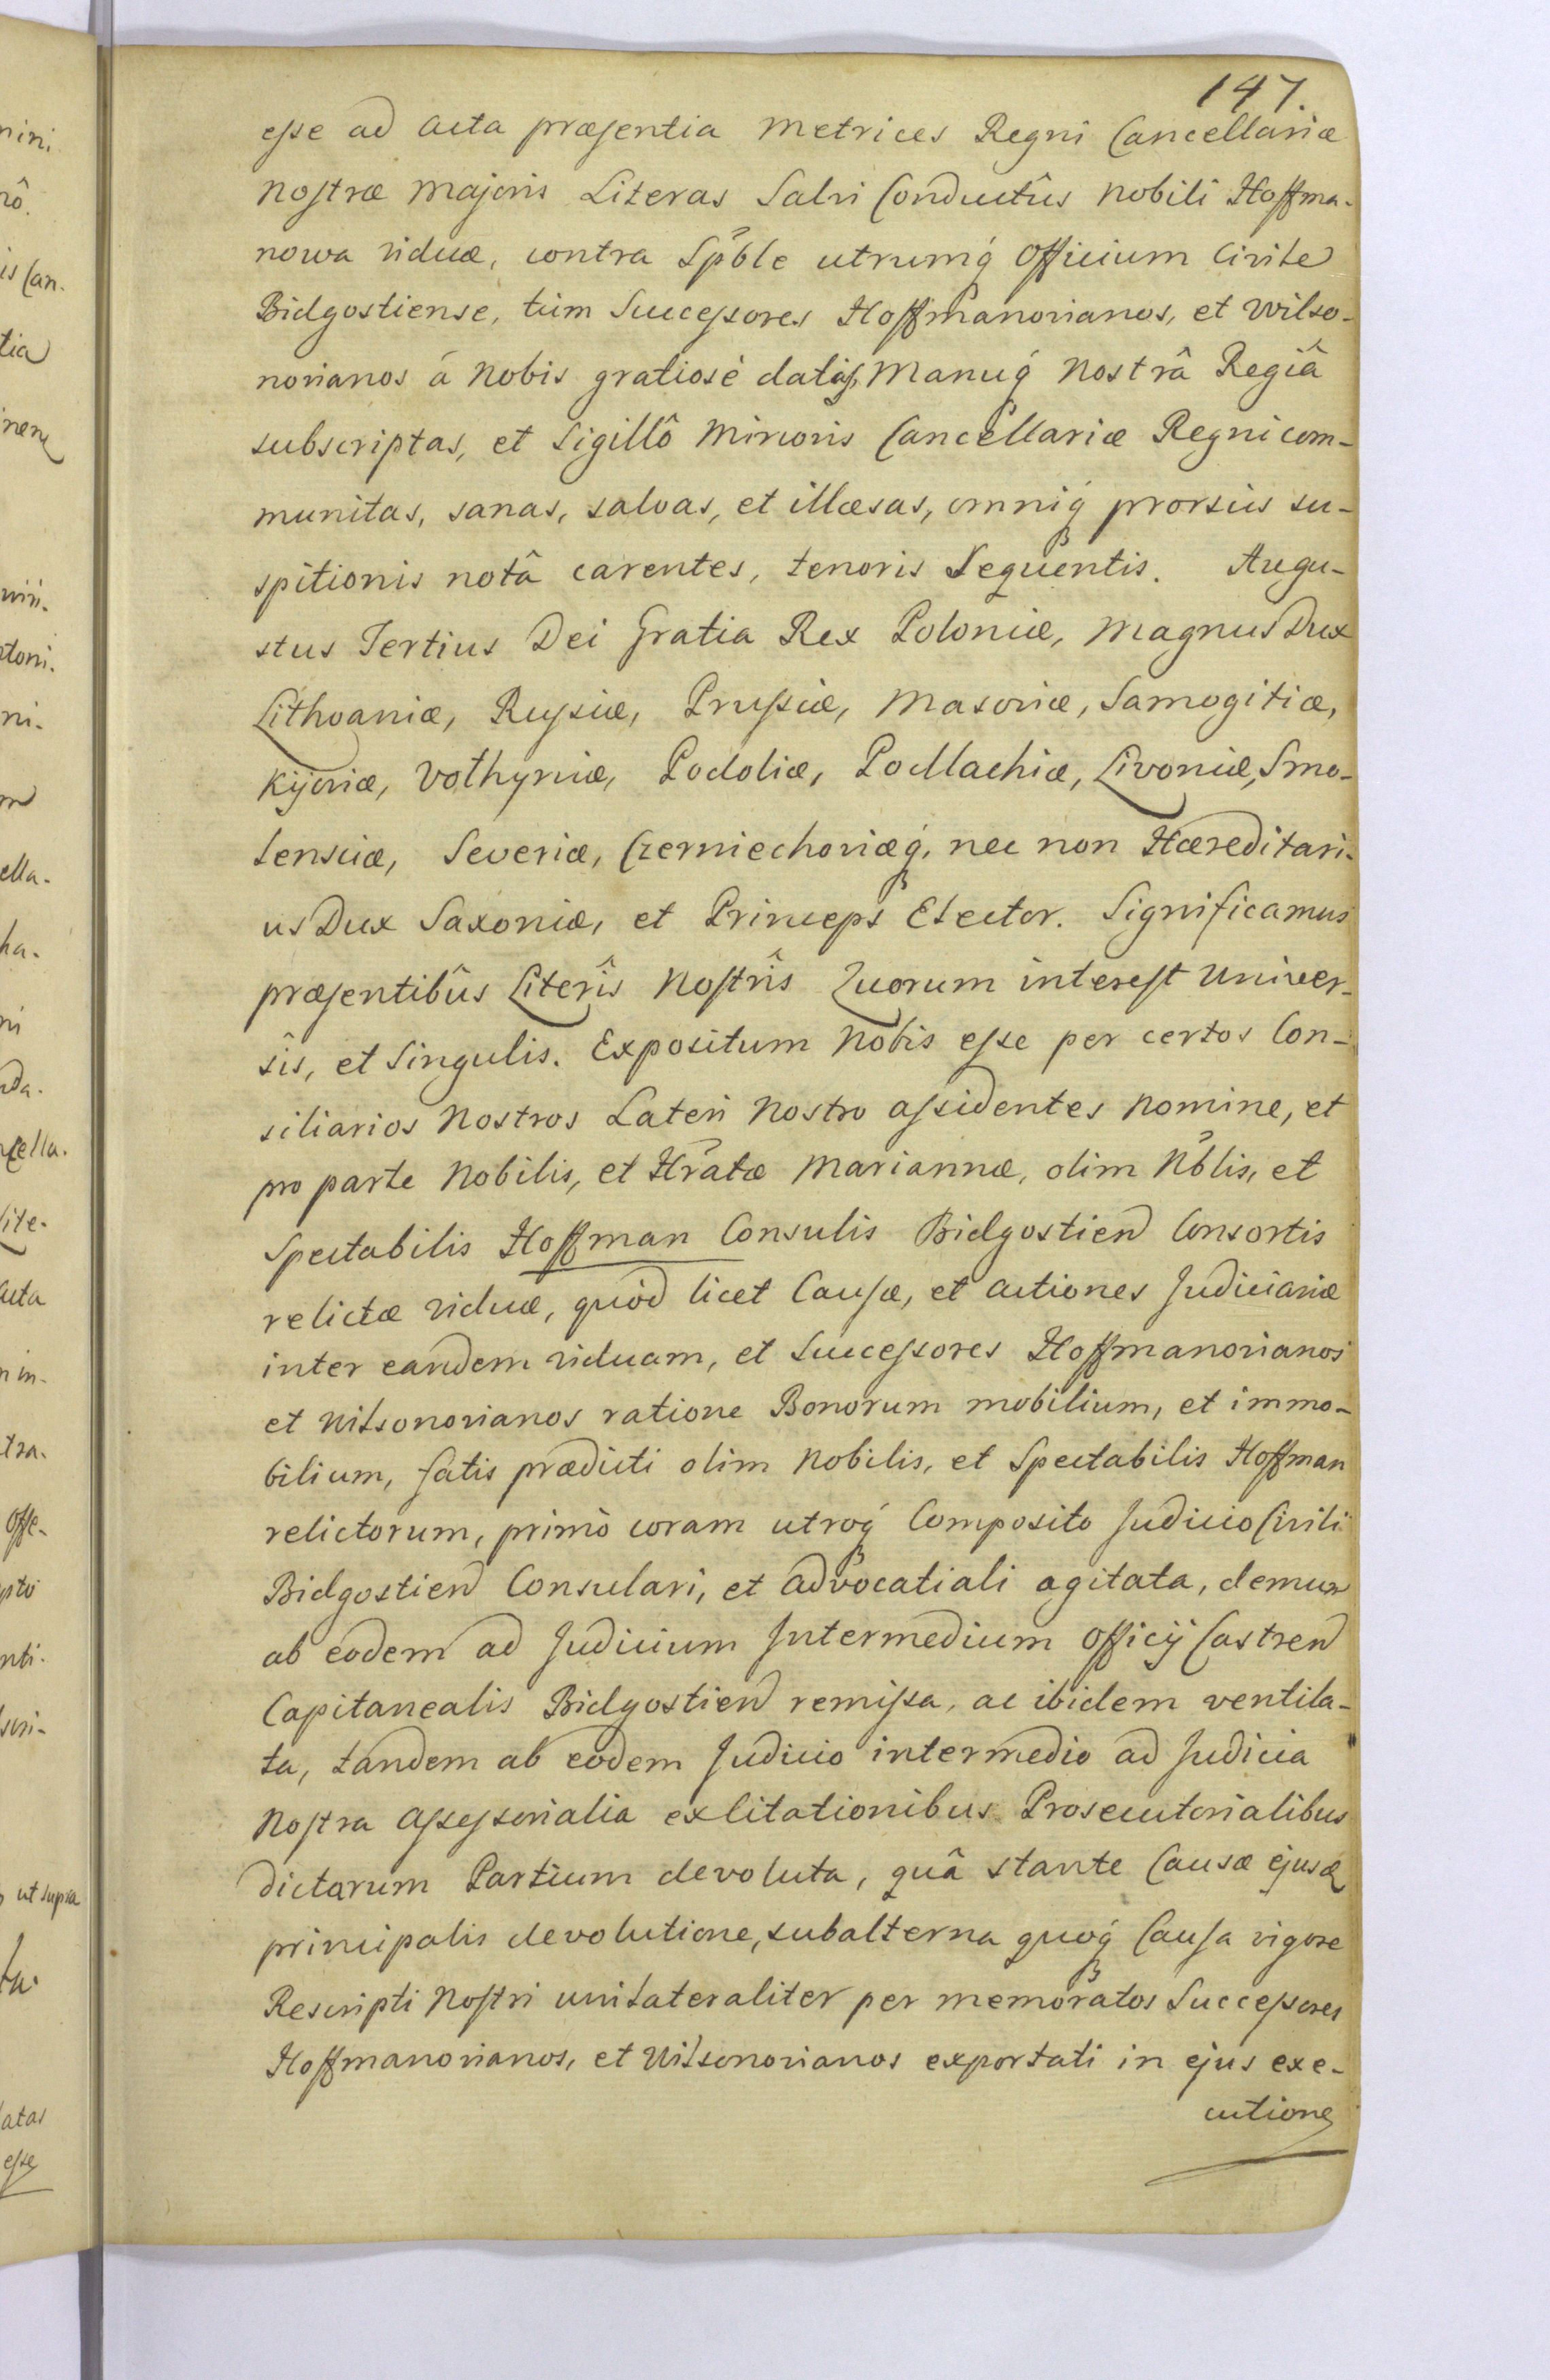 147.
esse ad acta præsentia Metrices Regni Cancellariæ
Nostræ Majoris Literas Salvi Conductûs Nobili Hoffma-
nowa viduæ, contra Spble utrumq́ Officium Civile
Bidgostiense, tùm Successores Hoffmanovianos, et Wilso-
novianos á Nobis gratiosè datas, Manuq́ Nostrâ Regiâ
subscriptas, et Sigillô Minoris Cancellariæ Regni com-
munitas, sanas, salvas, et illæsas, omniq́ prorsùs su-
spitionis notâ carentes, tenoris Sequentis. Augu-
stus Tertius Dei Gratia Rex Poloniæ, Magnus Dux
Lithvaniæ, Russiæ, Prussiæ, Masoviæ, Samogitiæ,
Kijoviæ, Volhyniæ, Podoliæ, Podlachiæ, Livoniæ, Smo-
lensciæ, Severiæ, Czerniechoviæq́, nec non Hæreditari-
us Dux Saxoniæ, et Princeps Elector. Significamus
præsentibûs Literîs Nostrîs Quorum interest Univer-
sîs, et Singulis. Expositum Nobis esse per certos Con-
siliarios Nostros Lateri Nostro assidentes nomine, et
pro parte Nobilis, et Hratæ Mariannæ, olim Nblis, et
Spectabilis Hoffman Consulis Bidgostien Consortis
relictæ viduæ, quòd licet Causæ, et actiones Judiciariæ
inter eandem viduam, et Successores Hoffmanovianos
et Wilsonovianos ratione Bonorum mobilium, et immo-
bilium, fatis prædicti olim Nobilis, et Spectabilis Hoffman
relictorum, primò coram utroq́ Composito Judicio Civili
Bidgostien Consulari, et advocatiali agitata, demum
ab eodem ad Judicium Intermedium Officij Castren
Capitanealis Bidgostien remissa, ac ibidem ventila-
ta, tandem ab eodem Judicio intermedio ad Judicia
Nostra Assessorialia exlitationibus Prosecutorialibus
dictarum Partium devoluta, quâ stante Causæ ejusd
principalis devolutione, subalterna quoq́ Causa vigore
Rescripti Nostri unilateraliter per memoratos Successores
Hoffmanovianos, et Wilsonovianos exportati in ejus exe-
cutione